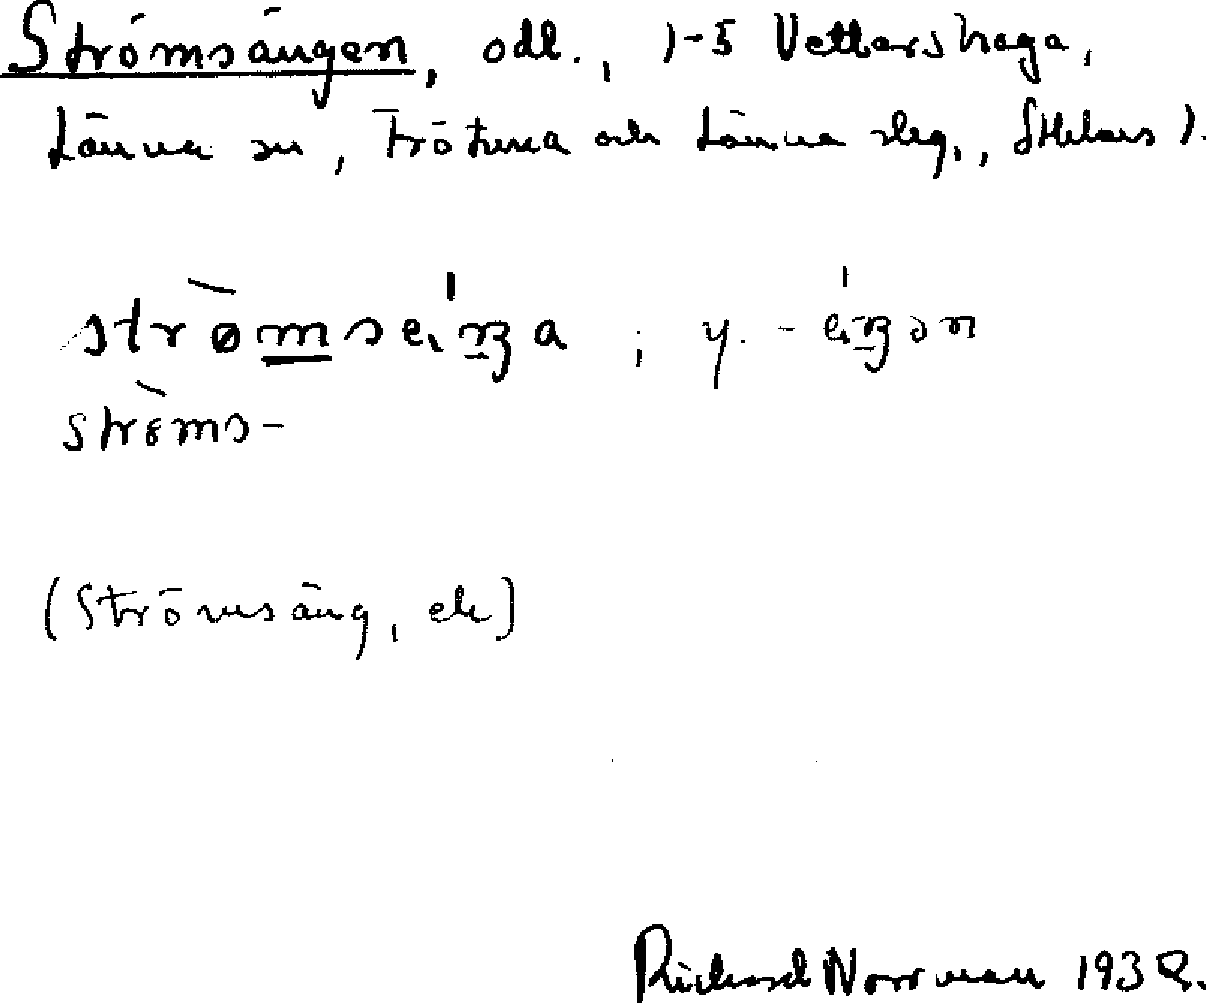 Strömsängen, odl., 1-5 Vettershaga,
Länna sn, Frötuna och Länna slg., Sthlms l.
strømseŋa ; y. -eŋən
ströms-
(Strömsäng, ek)
Richard Norrman 1938.